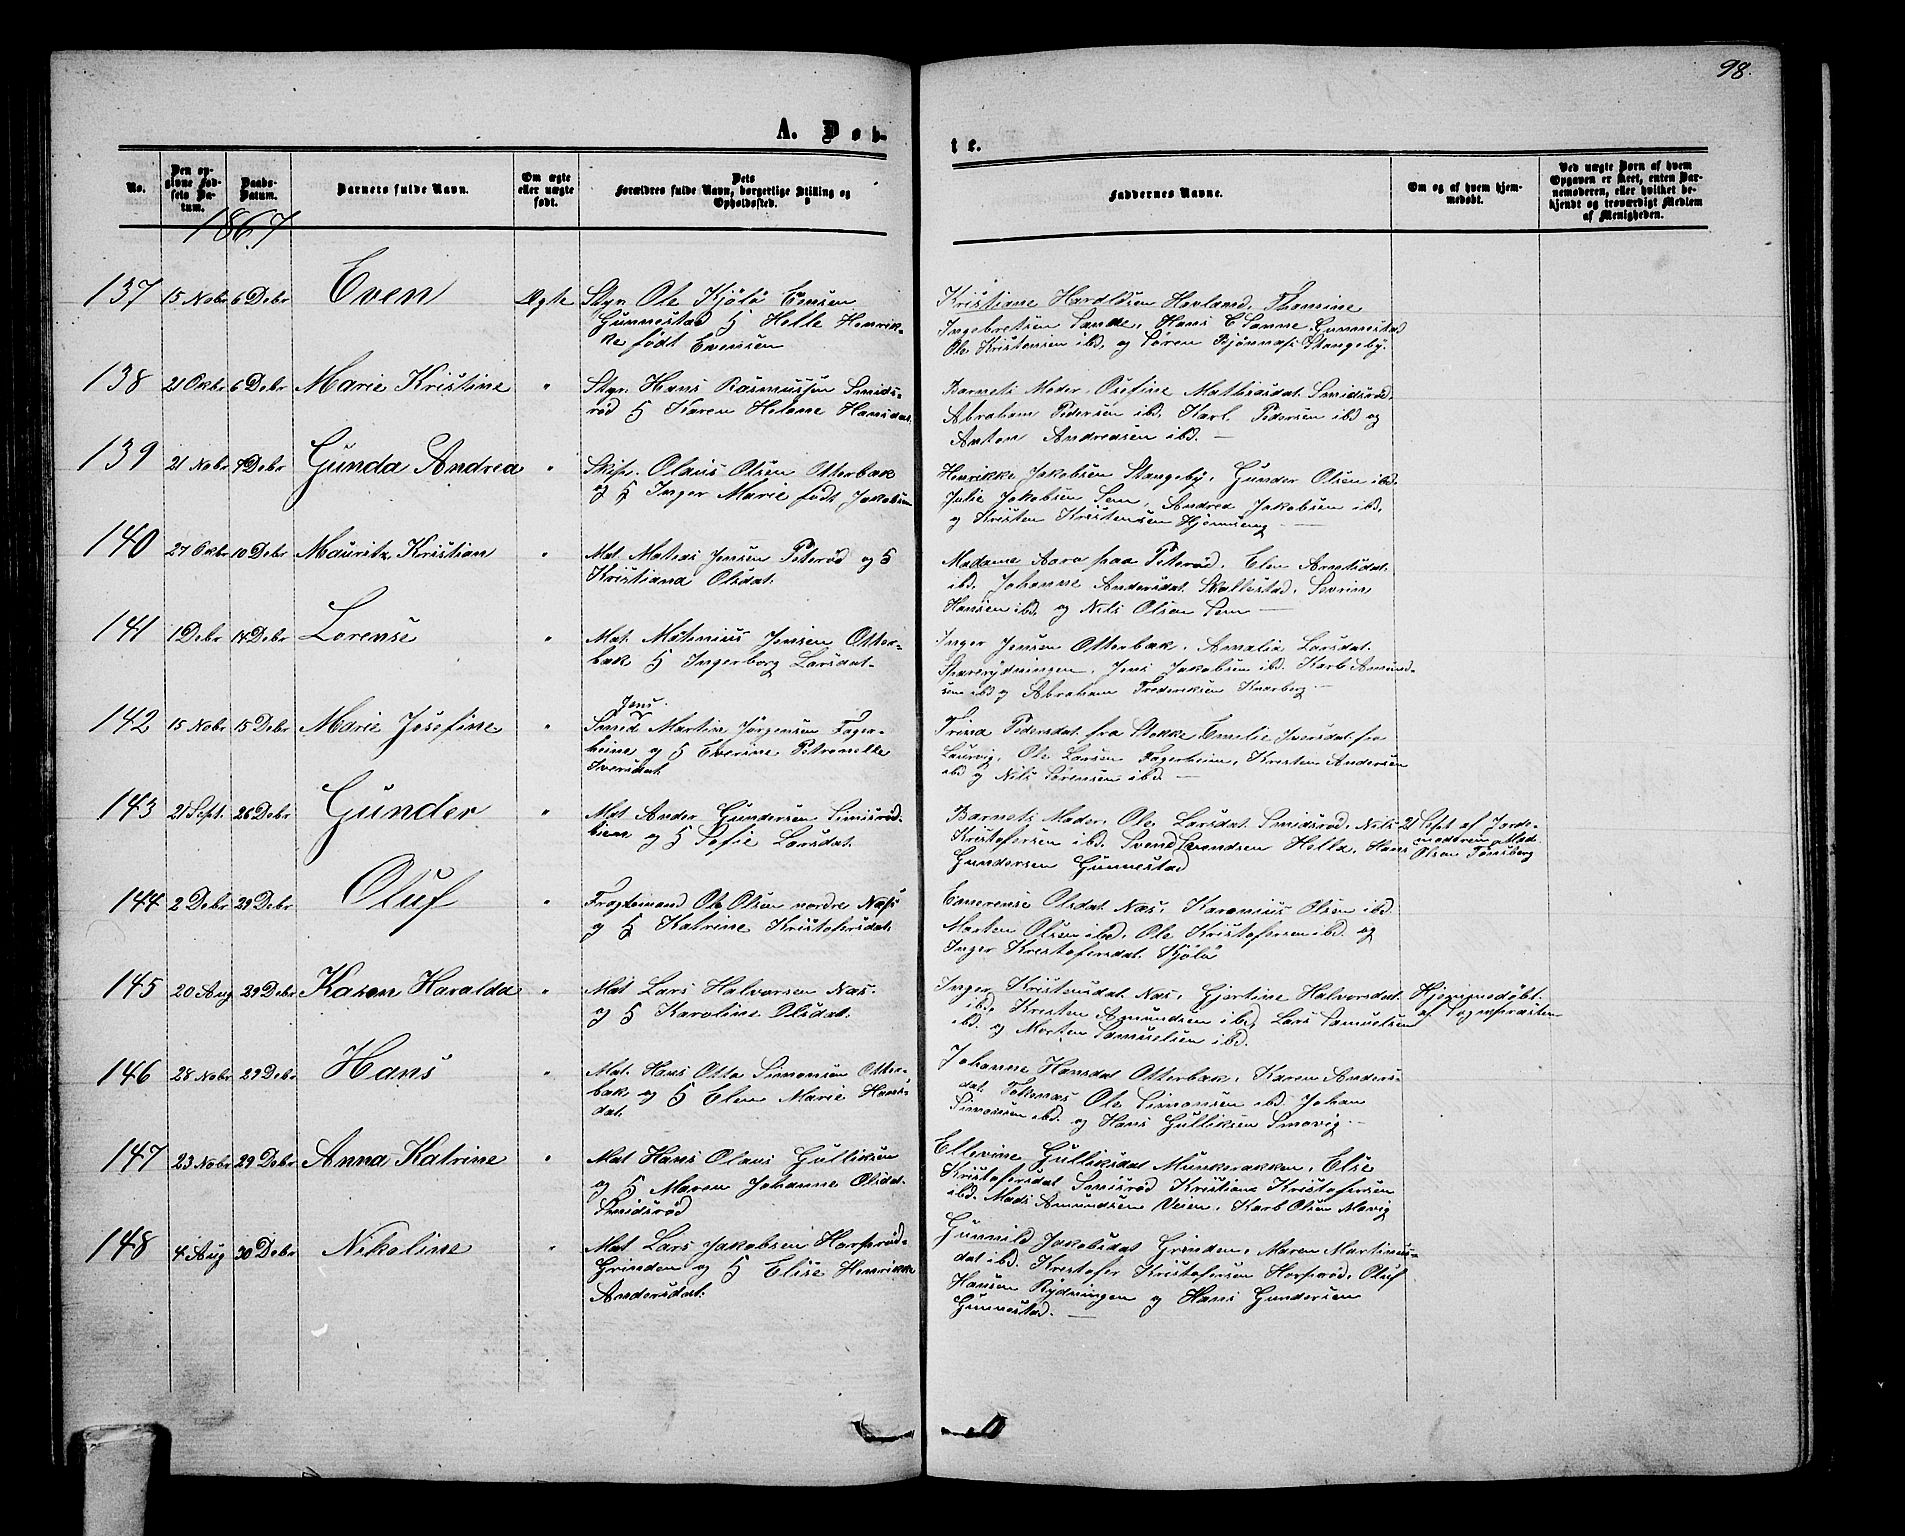 98.
A. Døb-
te.
No.
Den op-
givne Fød-
sels Da-
tum.
Daabs-
Datum.
Barnets fulde Navn.
Om ægte
eller uægte
født.
Dets
Forældres fulde Navn, borgerlige Stilling og
Opholdssted.
Faddernes Navne.
Om og af hvem hjem-
medøbt.
Ved uægte Børn af hvem
Opgaven er skeet, enten Bar-
nemoderen, eller hvilket be-
kjendt og troværdigt Medlem
af Menigheden.
1867
137 15 Nobr 6 Debr Even Ægte Styr Ole Kjølø Evensen
Gunnestad & Helle Henrik-
ke født Evensen
Kristiane Hardlsen Havland, Thomine
Ingebretsen Sande, Hans E Sanne Gunnestad
Ole Kristensen ibd. og Søren Bjønnæs Stangeby.
138 21 Okbr 6 Debr Marie Kristine " Styr. Hans Rasmussen Smids-
rød & Karen Helene Hansdat.
Barnets Moder, Osefine Mathiasdat. Smidsrød,
Abraham Pedersen ibd. Karl Pedersen ibd og
Anton Andreasen ibd. —
139 21 Nobr 9 Debr Gunda Andrea " Skip. Olaus Olsen Otterbæk
og & Inger Marie født Jakobsen
Henrikke Jakobsen Stangeby, Gunder Olsen ibd.
Julie Jakobsen Sem, Andrea Jakobsen ibd,
og Kristen Kristensen Hjemseng —
140 27 Okbr 10 Debr Mauritz Kristian " Mat. Matias Jensen Peterød og &
Kristiana Olsdat.
Madame Aara paa Peterød, Elen Arntsdat.
ibd, Johanne Andersdat. Skallestad, Sevrin
Hansen ibd og Nils Olsen Sem —
141 1 Debr 14 Debr Lorense " Mat. Matinius Jensen Otter-
bæk & Ingerborg Larsdat.
Inger Jensen Otterbæk, Amalia Larsdat.
Skarerydningen, Jens Jakobsen ibd. Karl Amund-
sen ibd og Abraham Frederiksen Knarberg —
142 15 Nobr 15 Debr Marie Josefine " Jens.
Smed Martin Jørgensen Fager-
heim og & Everine Petronelle
Iversdat.
Trina Pedersdat. fra Stokke Emelie Iversdat. fra
Laurvig, Ole Larsen Fagerheim, Kristen Andersen
ibd og Nils Sørensen ibd —
143 21 Sept. 26 Debr Gunder " Mat Ander Gundersen Smisrød-
hiem og & Sofie Larsdat.
Barnets Moder, Ole Larsdat. Smidsrød, Nils
Kristofersen ibd. Svend Svendsen Hella, Hans
Gundersen Gunnestad
21 Sept af Jorde-
moderen Mad.
Olsen Tønsberg
144 2 Debr 29 Debr Oluf " Fragtemand Ole Olsen nordre Næss
og & Katrine Kristofersdat.
Emerense Olsdat. Næs, Karenius Olsen ibd.
Morten Olsen ibd, Ole Kristofersen ibd og
Inger Kristofersdat. Kjølø
145 20 Aug 29 Debr Karen Haralda " Mat Lars Halvorsen Næs.
og & Karoline Olsdat.
Inger Kristensdat. Næs, Gjertine Halvorsdat.
ibd, Kristen Amundsen ibd, Lars Samuelsen
ibd. og Morten Samuelsen ibd.
Hjemmedøbt
af Sognepræsten
146 28 Nobr 29 Debr Hans " Mat. Hans Otto Simonsen Otter-
bæk og & Elen Marie Hans-
dat.
Johanne Hansdat Otterbæk, Karen Anders-
dat. Tokenæs Ole Simonsen ibd. Johan
Simonsen ibd. og Hans Gulliksen Smovig. —
147 23 Nobr 29 Debr Anna Katrine " Mat Hans Olaus Gulliksen
og & Maren Johanne Olsdat.
Smidsrød
Ellevine Gulliksdat Munkerækken, Else
Kristofersdat Smisrød Kristiane Kristofersen
ibd. Mads Amundsen Veien, Karl Olsen Movig
148 4 Aug 30 Debr Nikoline " Mat Lars Jakobsen Horperød-
Grinden og & Elise Henrikke
Andersdat.
Gunnild Jakobsdat Grinden, Maren Martinus-
dat ibd. Kristofer Kristofersen Horperød, Oluf
Hansen Rydningen og Hans Gundersen
Gunnestad. —